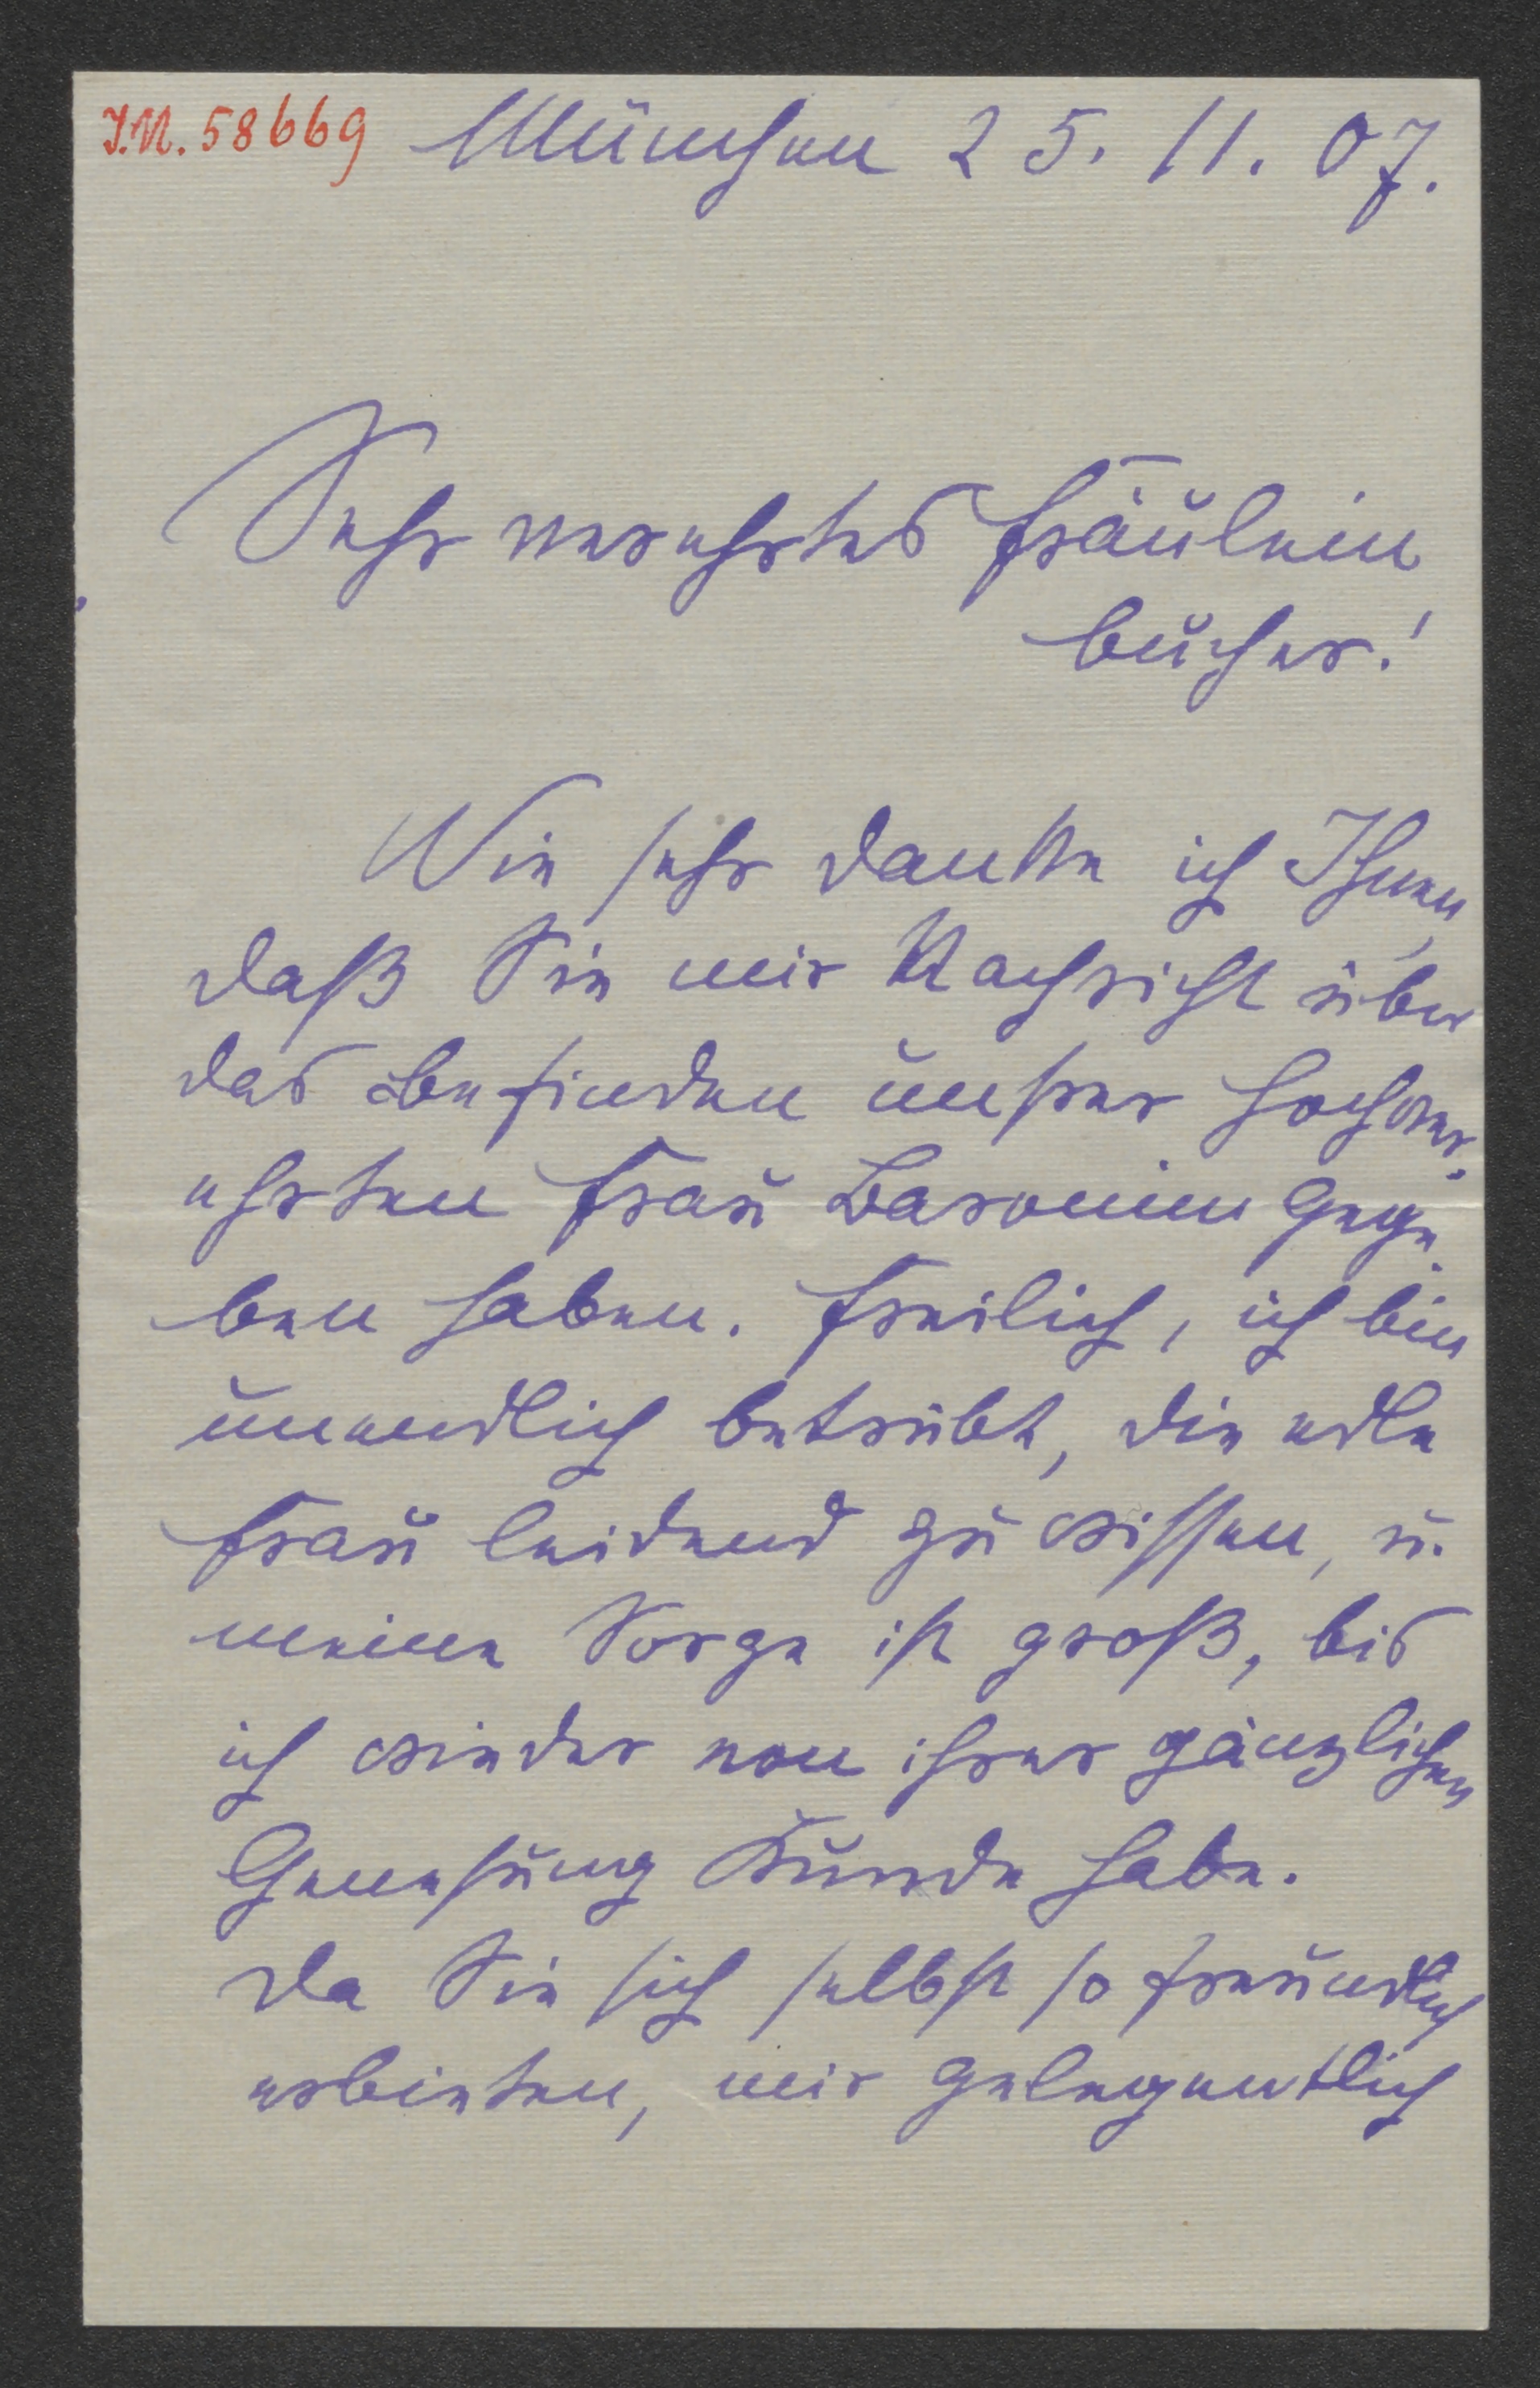 I.N. 58669 München 25. 11. 07.
Sehr verehrtes Fräulein
Bucher!
Wie sehr danke ich Ihnen,
daß Sie mir Nachricht über
das Befinden unsrer hochver-
ehrten Frau Baronin gege-
ben haben. Freilich, ich bin
unendlich betrübt, die edle
Frau leidend zu wissen, u.
meine Sorge ist groß, bis
ich wieder von ihrer gänzlichen
Genesung Kunde habe.
Da Sie sich selbst so freundlich
erbieten, mir gelegentlich